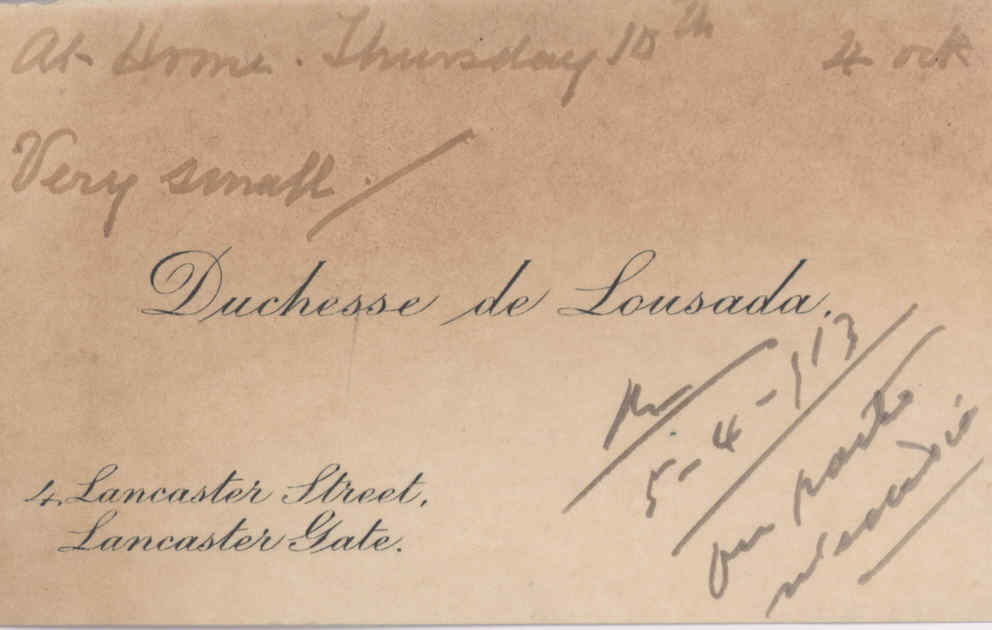 At Home. Thursday 10th 4 ock
Very small.
Duchesse de Lousada.
5-4-913
4, Lancaster Street,
Lancaster Gate.